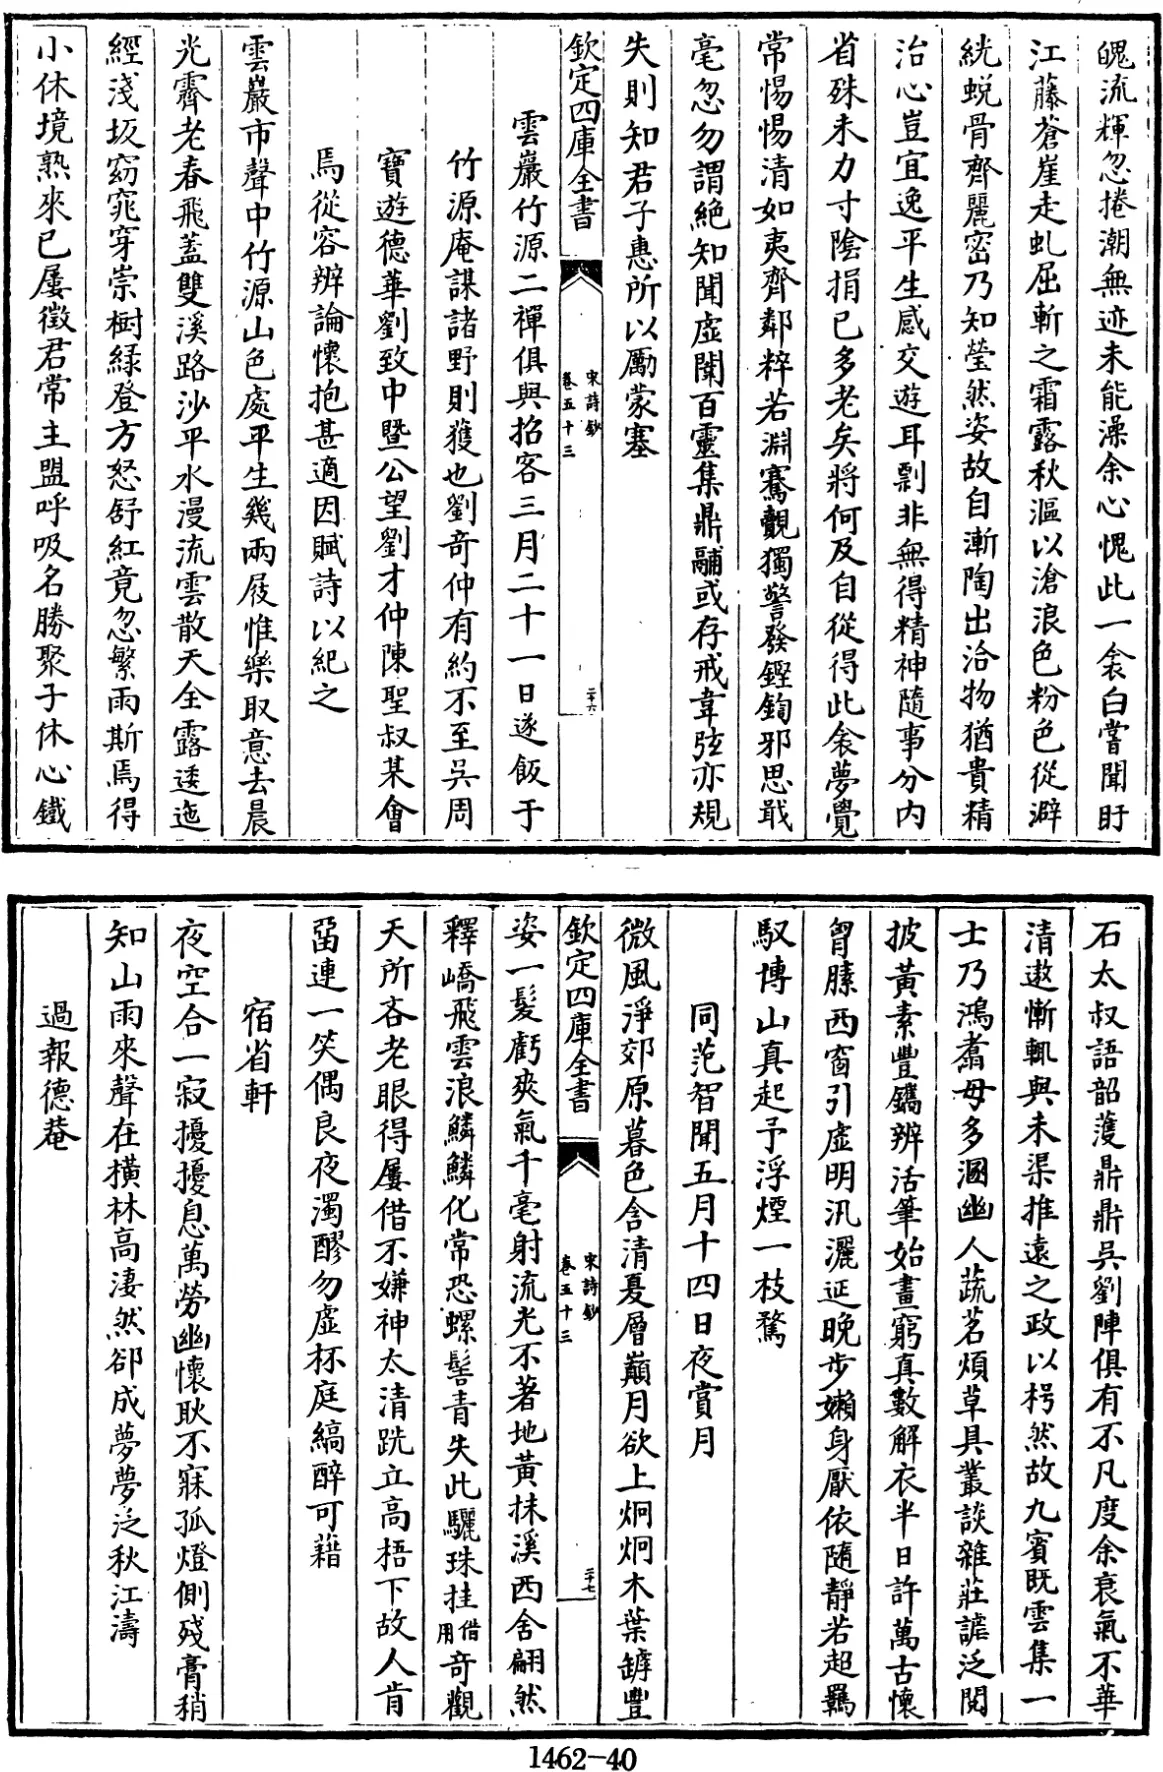 魄流輝忽捲潮無迹未能澡余心愧此一衾白嘗聞盱
江藤蒼崖走虬屈斬之霜露秋漚以滄浪色粉色從澼
絖蛻骨齊麗密乃知瑩然姿故自漸陶出洽物猶貴精
治心豈宜逸平生感交遊耳剽非無得精神隨事分内
省殊未力寸陰捐已多老矣將何及自從得此衾夢覺
常惕惕清如夷齊鄰粹若淵騫覿獨警發鏗鍧邪思戢
毫忽勿謂絶知聞虛闃百靈集鼎鬴或存戒韋弦亦規
失則知君子惠所以勵蒙塞
欽定四庫全書
宋詩鈔
卷五十三
二十六
雲巖竹源二禪俱與招客三月二十一日遂飯于
竹源庵謀諸野則獲也劉奇仲有約不至吳周
寶遊德華劉致中暨公望劉才仲陳聖叔某會
焉從容辨論懷抱甚適因賦詩以紀之
雲巖市聲中竹源山色處平生幾兩屐惟樂取意去晨
光霽老春飛蓋雙溪路沙平水漫流雲散天全露逶迤
經淺坂窈窕穿崇樹緑登方怒舒紅竟忽繁雨斯焉得
小休境熟來已屢徵君常主盟呼吸名勝聚子休心鐵
石太叔語韶頀鼎鼎吳劉陣俱有不凡度余衰氣不華
清遨慚輒與未渠推遠之政以枵然故九賓既雲集一
士乃鴻翥毋多溷幽人蔬茗煩草具叢談雜莊謔泛閲
披黄素豐鐫辨活筆始畫窮真數解衣半日許萬古懷
胷膆西窗引虛明汛灑延晚步嬾身厭依隨靜若超羈
馭博山真起予浮煙一枝騖
同范智聞五月十四日夜賞月
微風淨郊原暮色含清夏層巔月欲上炯炯木葉罅豐
欽定四庫全書
宋詩鈔
卷五十三
二十七
姿一髮虧爽氣千毫射流光不著地黄抹溪西舍翩然
釋嶠飛雲浪鱗鱗化常恐螺髻青失此驪珠挂借用奇觀
天所吝老眼得屢借不嫌神太清跣立高梧下故人肯
留連一笑偶良夜濁醪勿虛杯庭縞醉可藉
宿省軒
夜空合一寂擾擾息萬勞幽懷耿不寐孤燈側殘膏稍
知山雨來聲在横林高淒然卻成夢夢泛秋江濤
過報德菴
1462-40